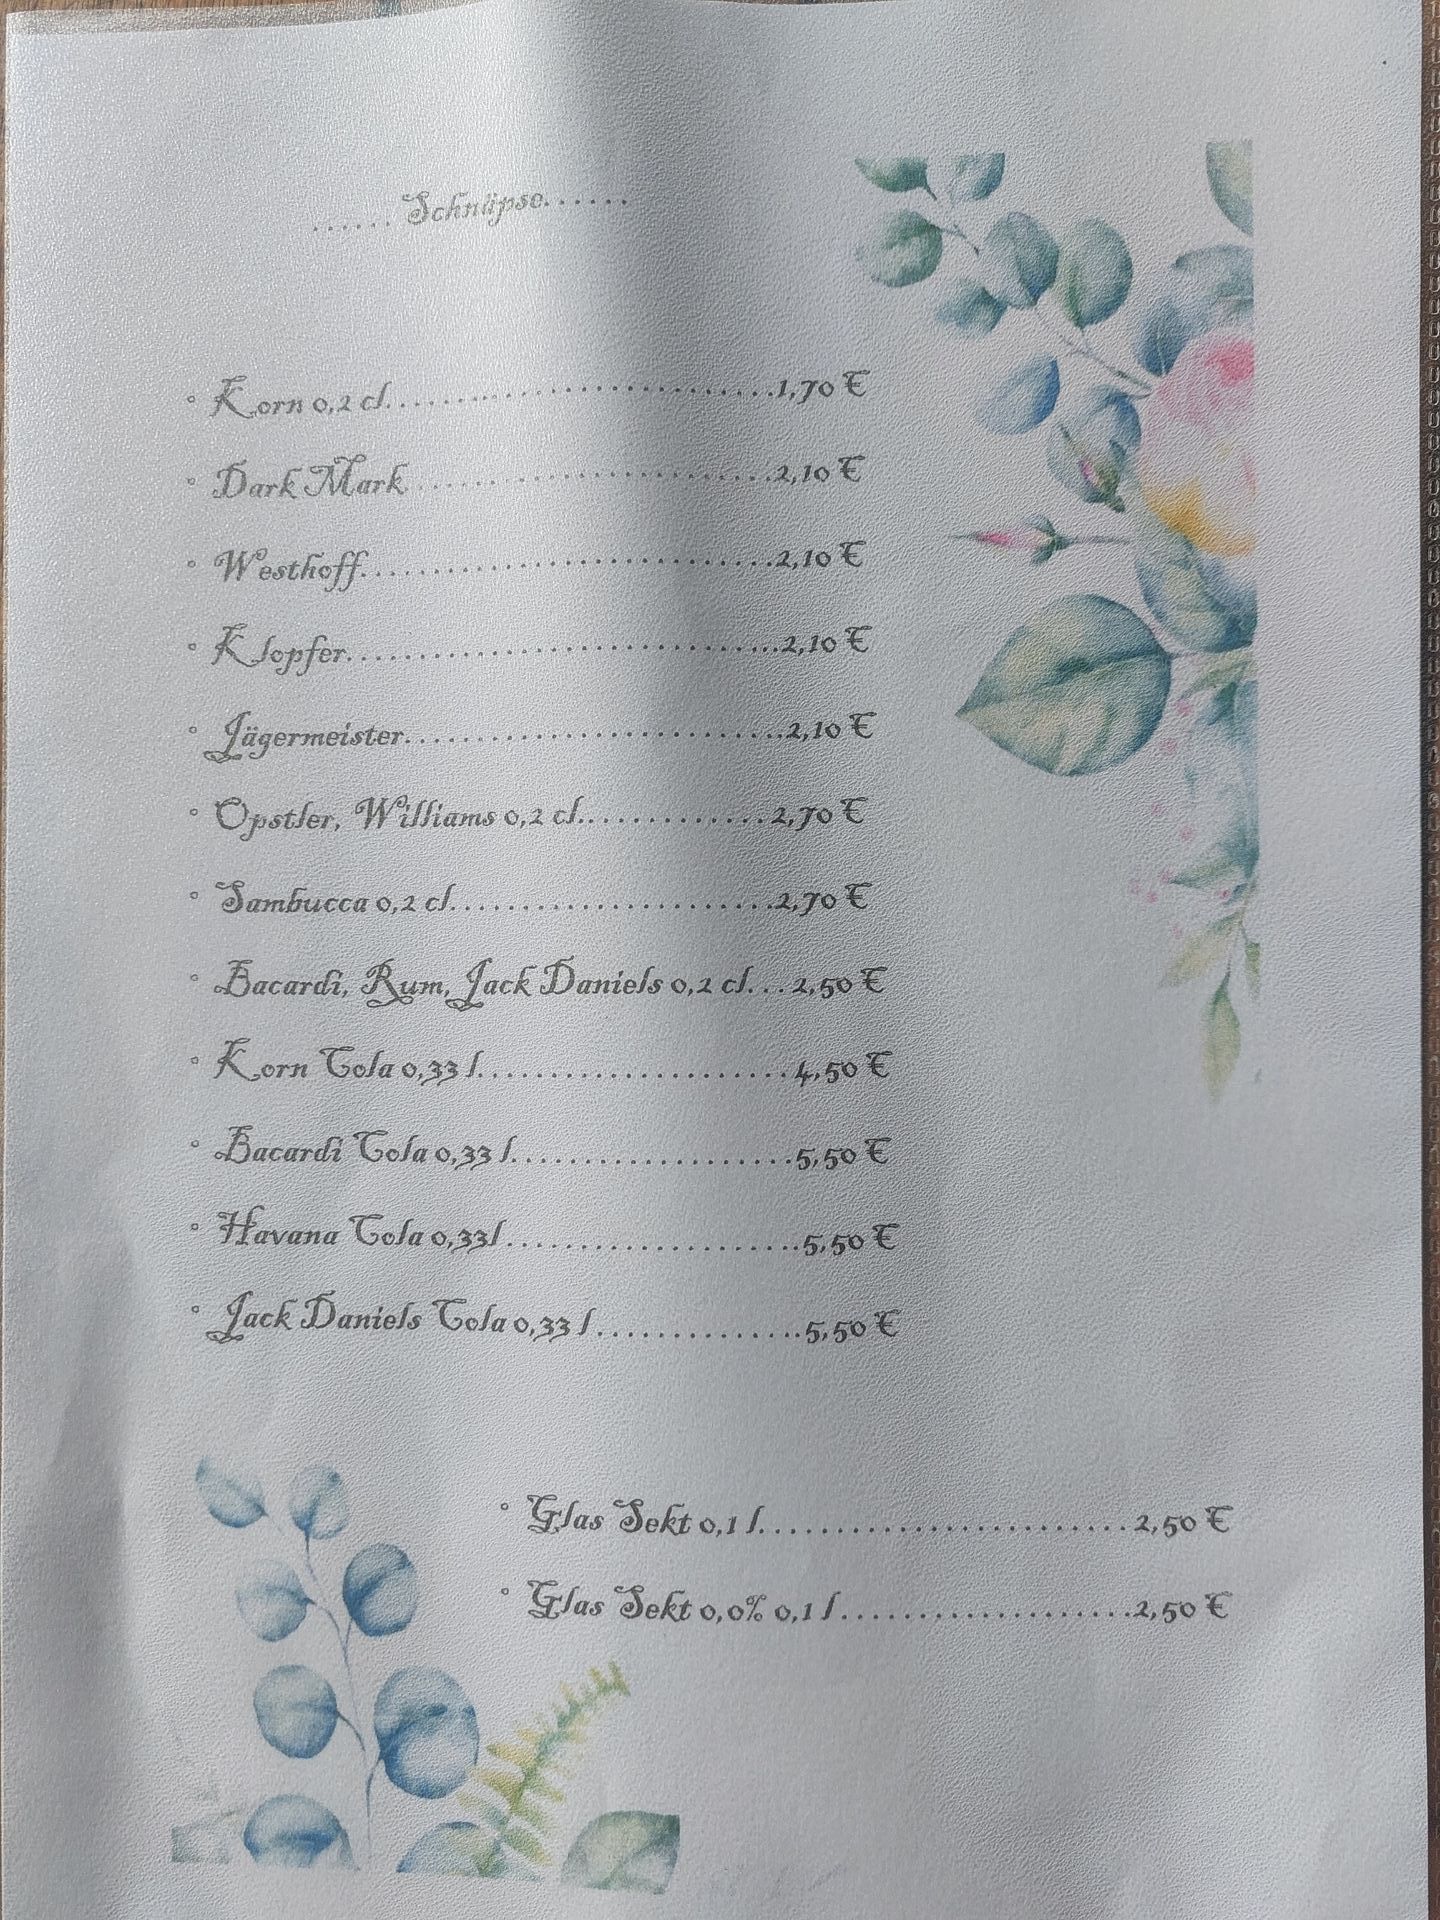 ......Schnäpse......
° Korn 0,2 cl..............................1,70 €
° Dark Mark..............................2,10 €
° Westhoff..............................2,10 €
° Klopfer..............................2,10 €
° Jägermeister..............................2,10 €
° Opstler, Williams 0,2 cl..............2,70 €
° Sambucca 0,2 cl........................2,70 €
° Bacardi, Rum, Jack Daniels 0,2 cl...2,50 €
° Korn Cola 0,33 l......................4,50 €
° Bacardi Cola 0,33 l....................5,50 €
° Havana Cola 0,33l.....................5,50 €
° Jack Daniels Cola 0,33 l...............5,50 €
° Glas Sekt 0,1 l..........................2,50 €
° Glas Sekt 0,0% 0,1 l.....................2,50 €